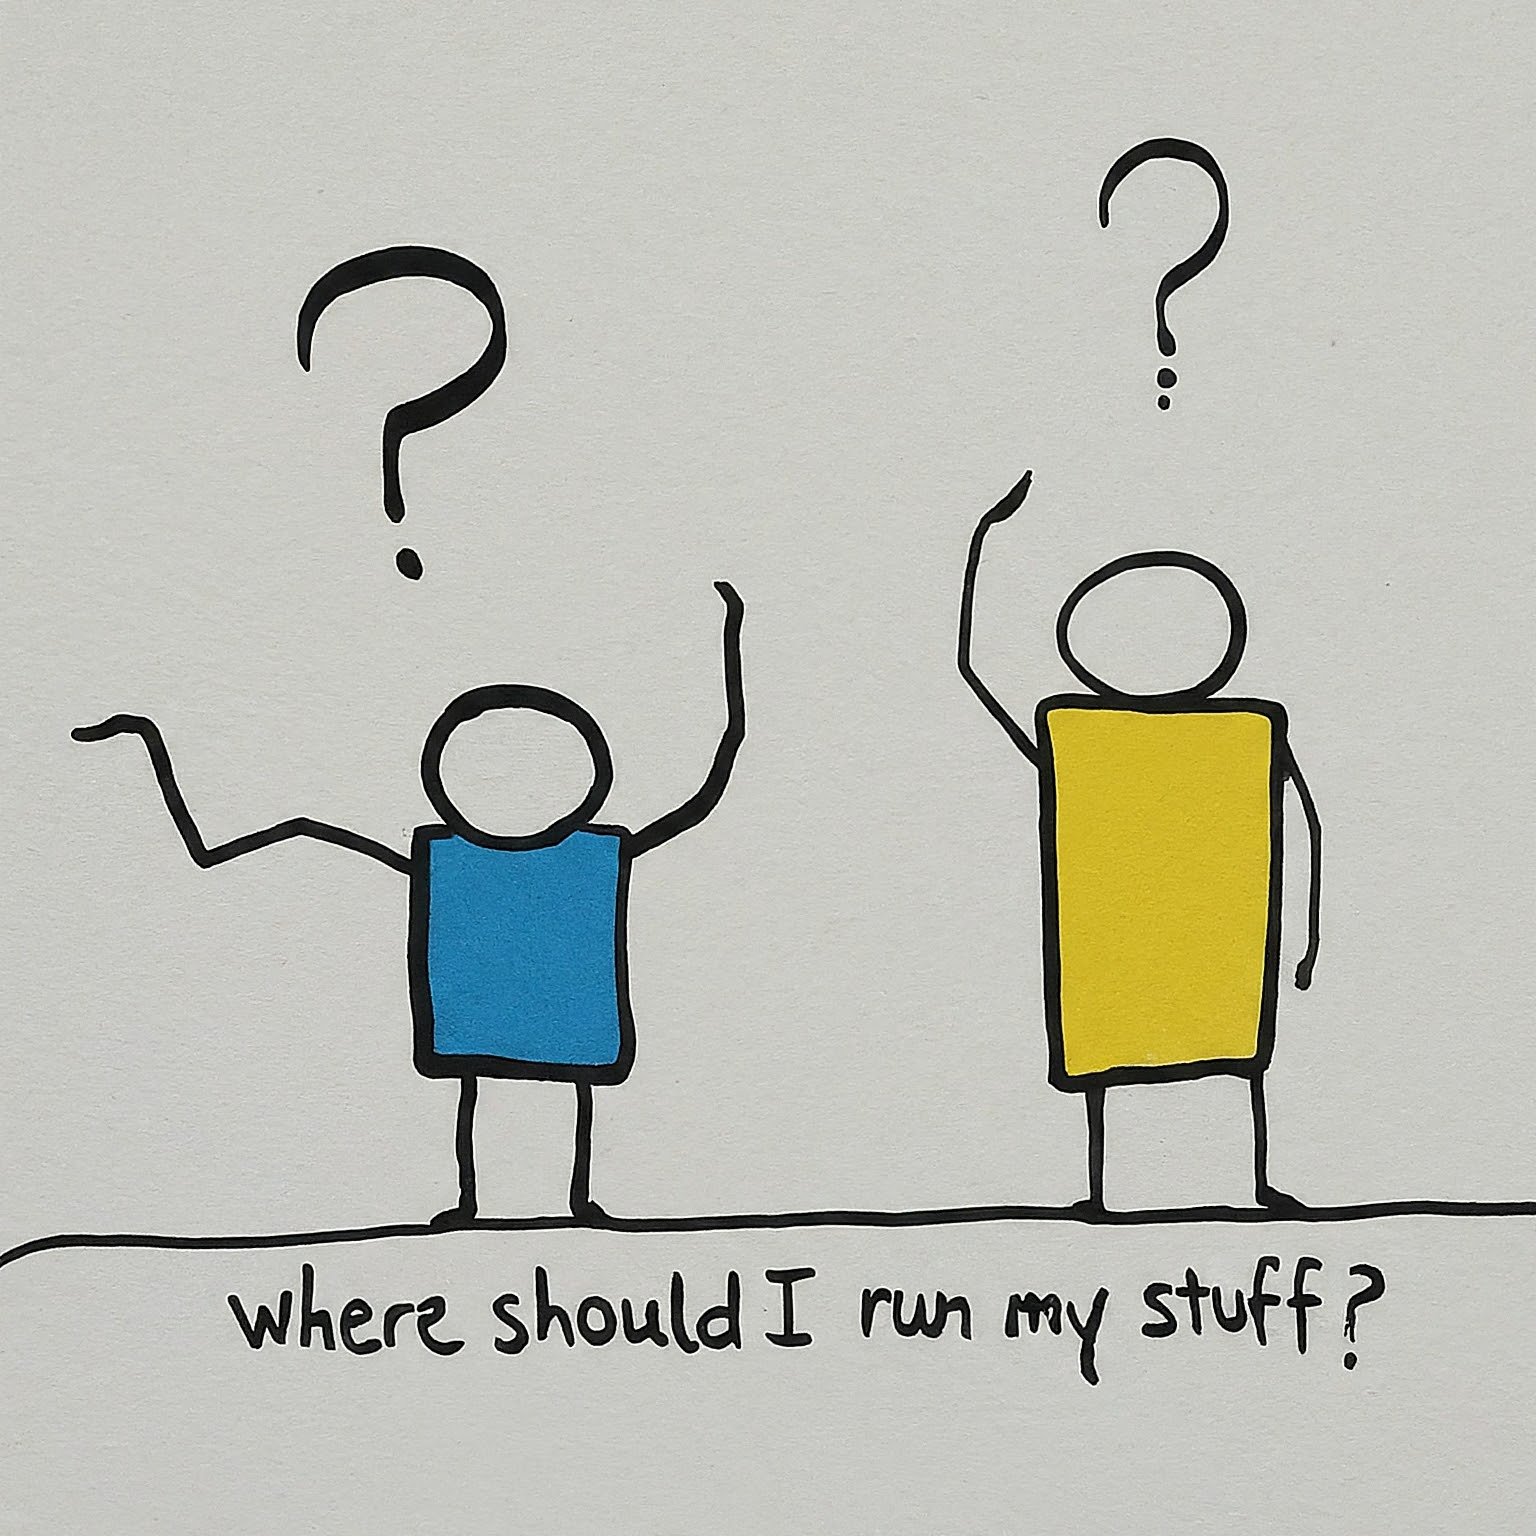 where should I run my stuff?